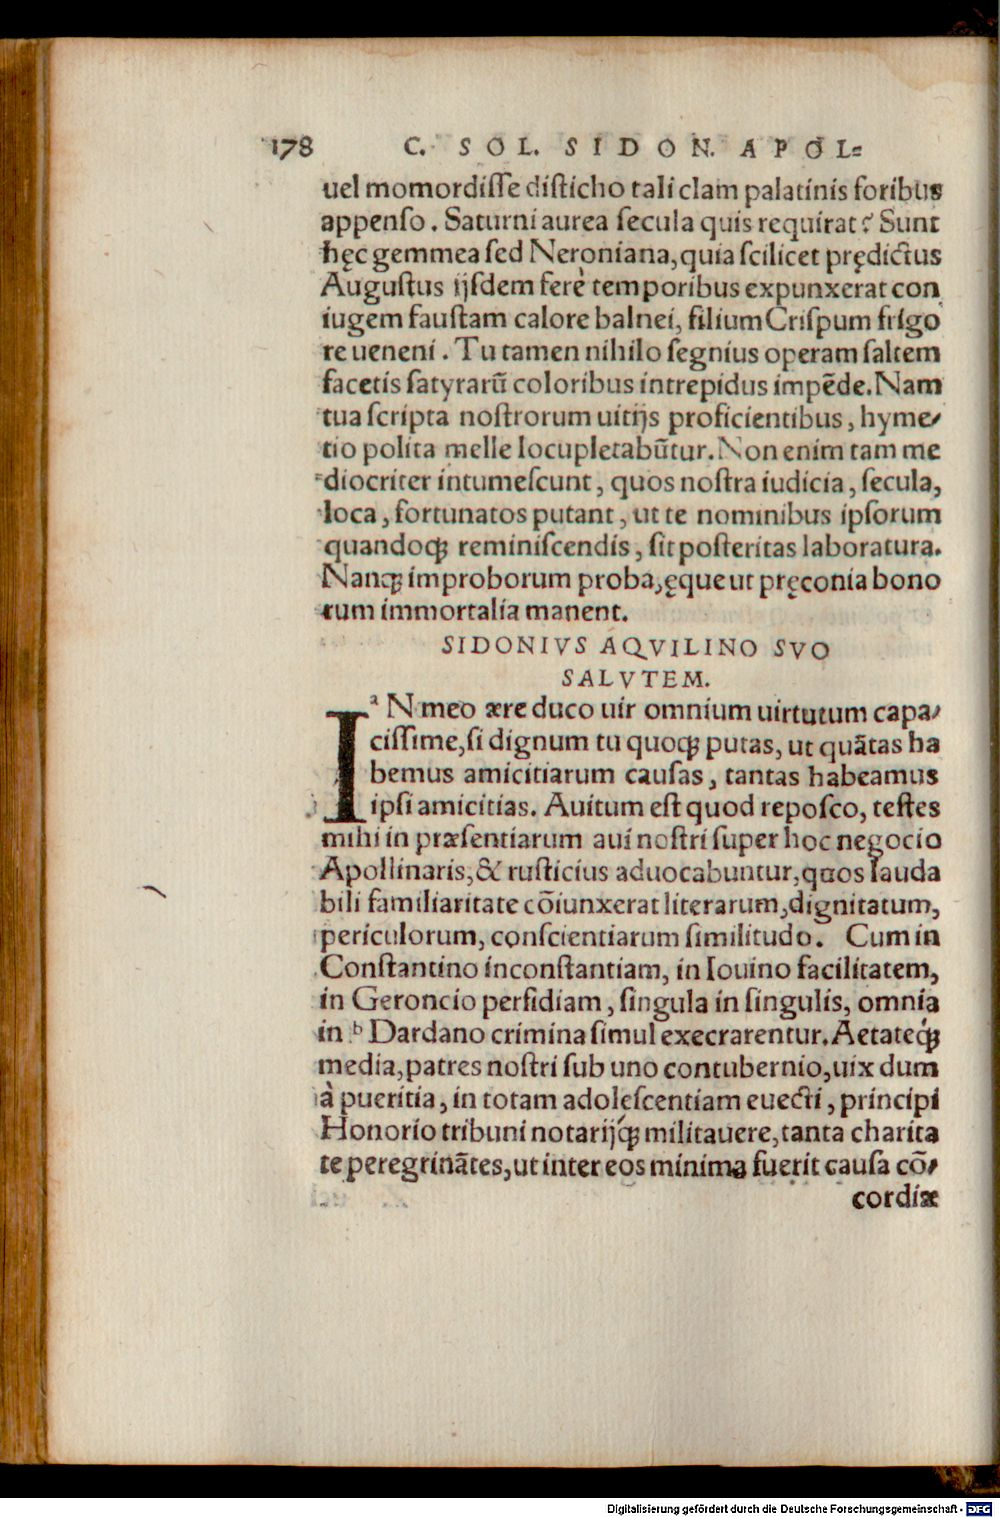 178 C. SOL. SIDON. APOL⸗
uel momordiſſe diſticho tali clam palatinis foribus
appenſo. Saturni aurea ſecula quis requirat? Sunt
hęc gemmea ſed Neroniana, quia ſcilicet prędictus
Auguſtus ijſdem ferè temporibus expunxerat con
iugem fauſtam calore balnei, filium Criſpum frigo
re ueneni. Tu tamen nihilo ſegnius operam ſaltem
facetis ſatyrarũ coloribus intrepidus impẽde. Nam
tua ſcripta noſtrorum uitijs proficientibus, hyme⸗
tio polita melle locupletabũtur. Non enim tam me
diocriter intumeſcunt, quos noſtra iudicia, ſecula,
loca, fortunatos putant, ut te nominibus ipſorum
quandoq; reminiſcendis, ſit poſteritas laboratura.
Nanq; improborum proba, ęque ut pręconia bono
rum immortalia manent.
SIDONIVS AQVILINO SVO
SALVTEM.
ᵃ IN meo ære duco uir omnium uirtutum capa⸗
ciſſime, ſi dignum tu quoq; putas, ut quãtas ha
bemus amicitiarum cauſas, tantas habeamus
ipſi amicitias. Auitum eſt quod repoſco, teſtes
mihi in præſentiarum aui noſtri ſuper hoc negocio
Apollinaris, & ruſticius aduocabuntur, quos lauda
bili familiaritate cõiunxerat literarum, dignitatum,
periculorum, conſcientiarum ſimilitudo. Cum in
Conſtantino inconſtantiam, in Iouino facilitatem,
in Geroncio perfidiam, ſingula in ſingulis, omnia
in ᵇ Dardano crimina ſimul execrarentur. Aetateq́;
media, patres noſtri ſub uno contubernio, uix dum
à pueritia, in totam adoleſcentiam euecti, principi
Honorio tribuni notarijq́; militauere, tanta charita
te peregrinãtes, ut inter eos minima fuerit cauſa cõ⸗
cordiæ
Digitalisierung gefördert durch die Deutsche Forschungsgemeinschaft - DFG